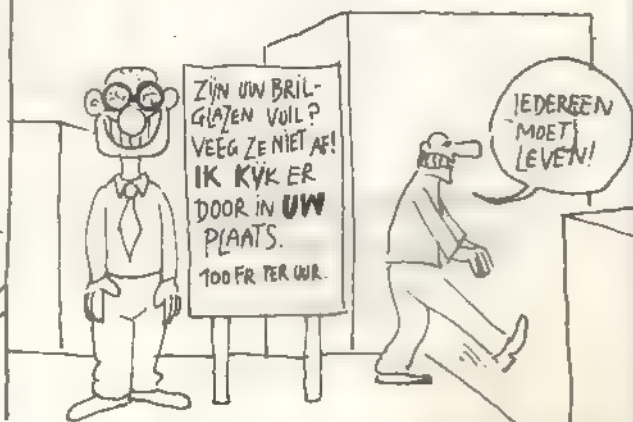 ZIJN UW BRIL-
GLAZEN VUIL?
VEEG ZE NIET AF!
IK KIJK ER
DOOR IN UW
PLAATS.
100 FR PER UUR.
IEDEREEN
MOET
LEVEN!